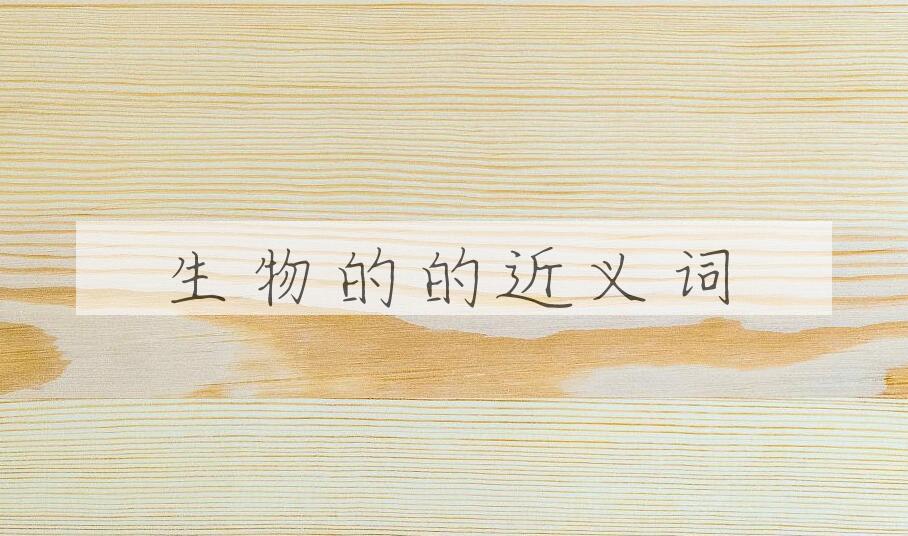 生物的的近义词